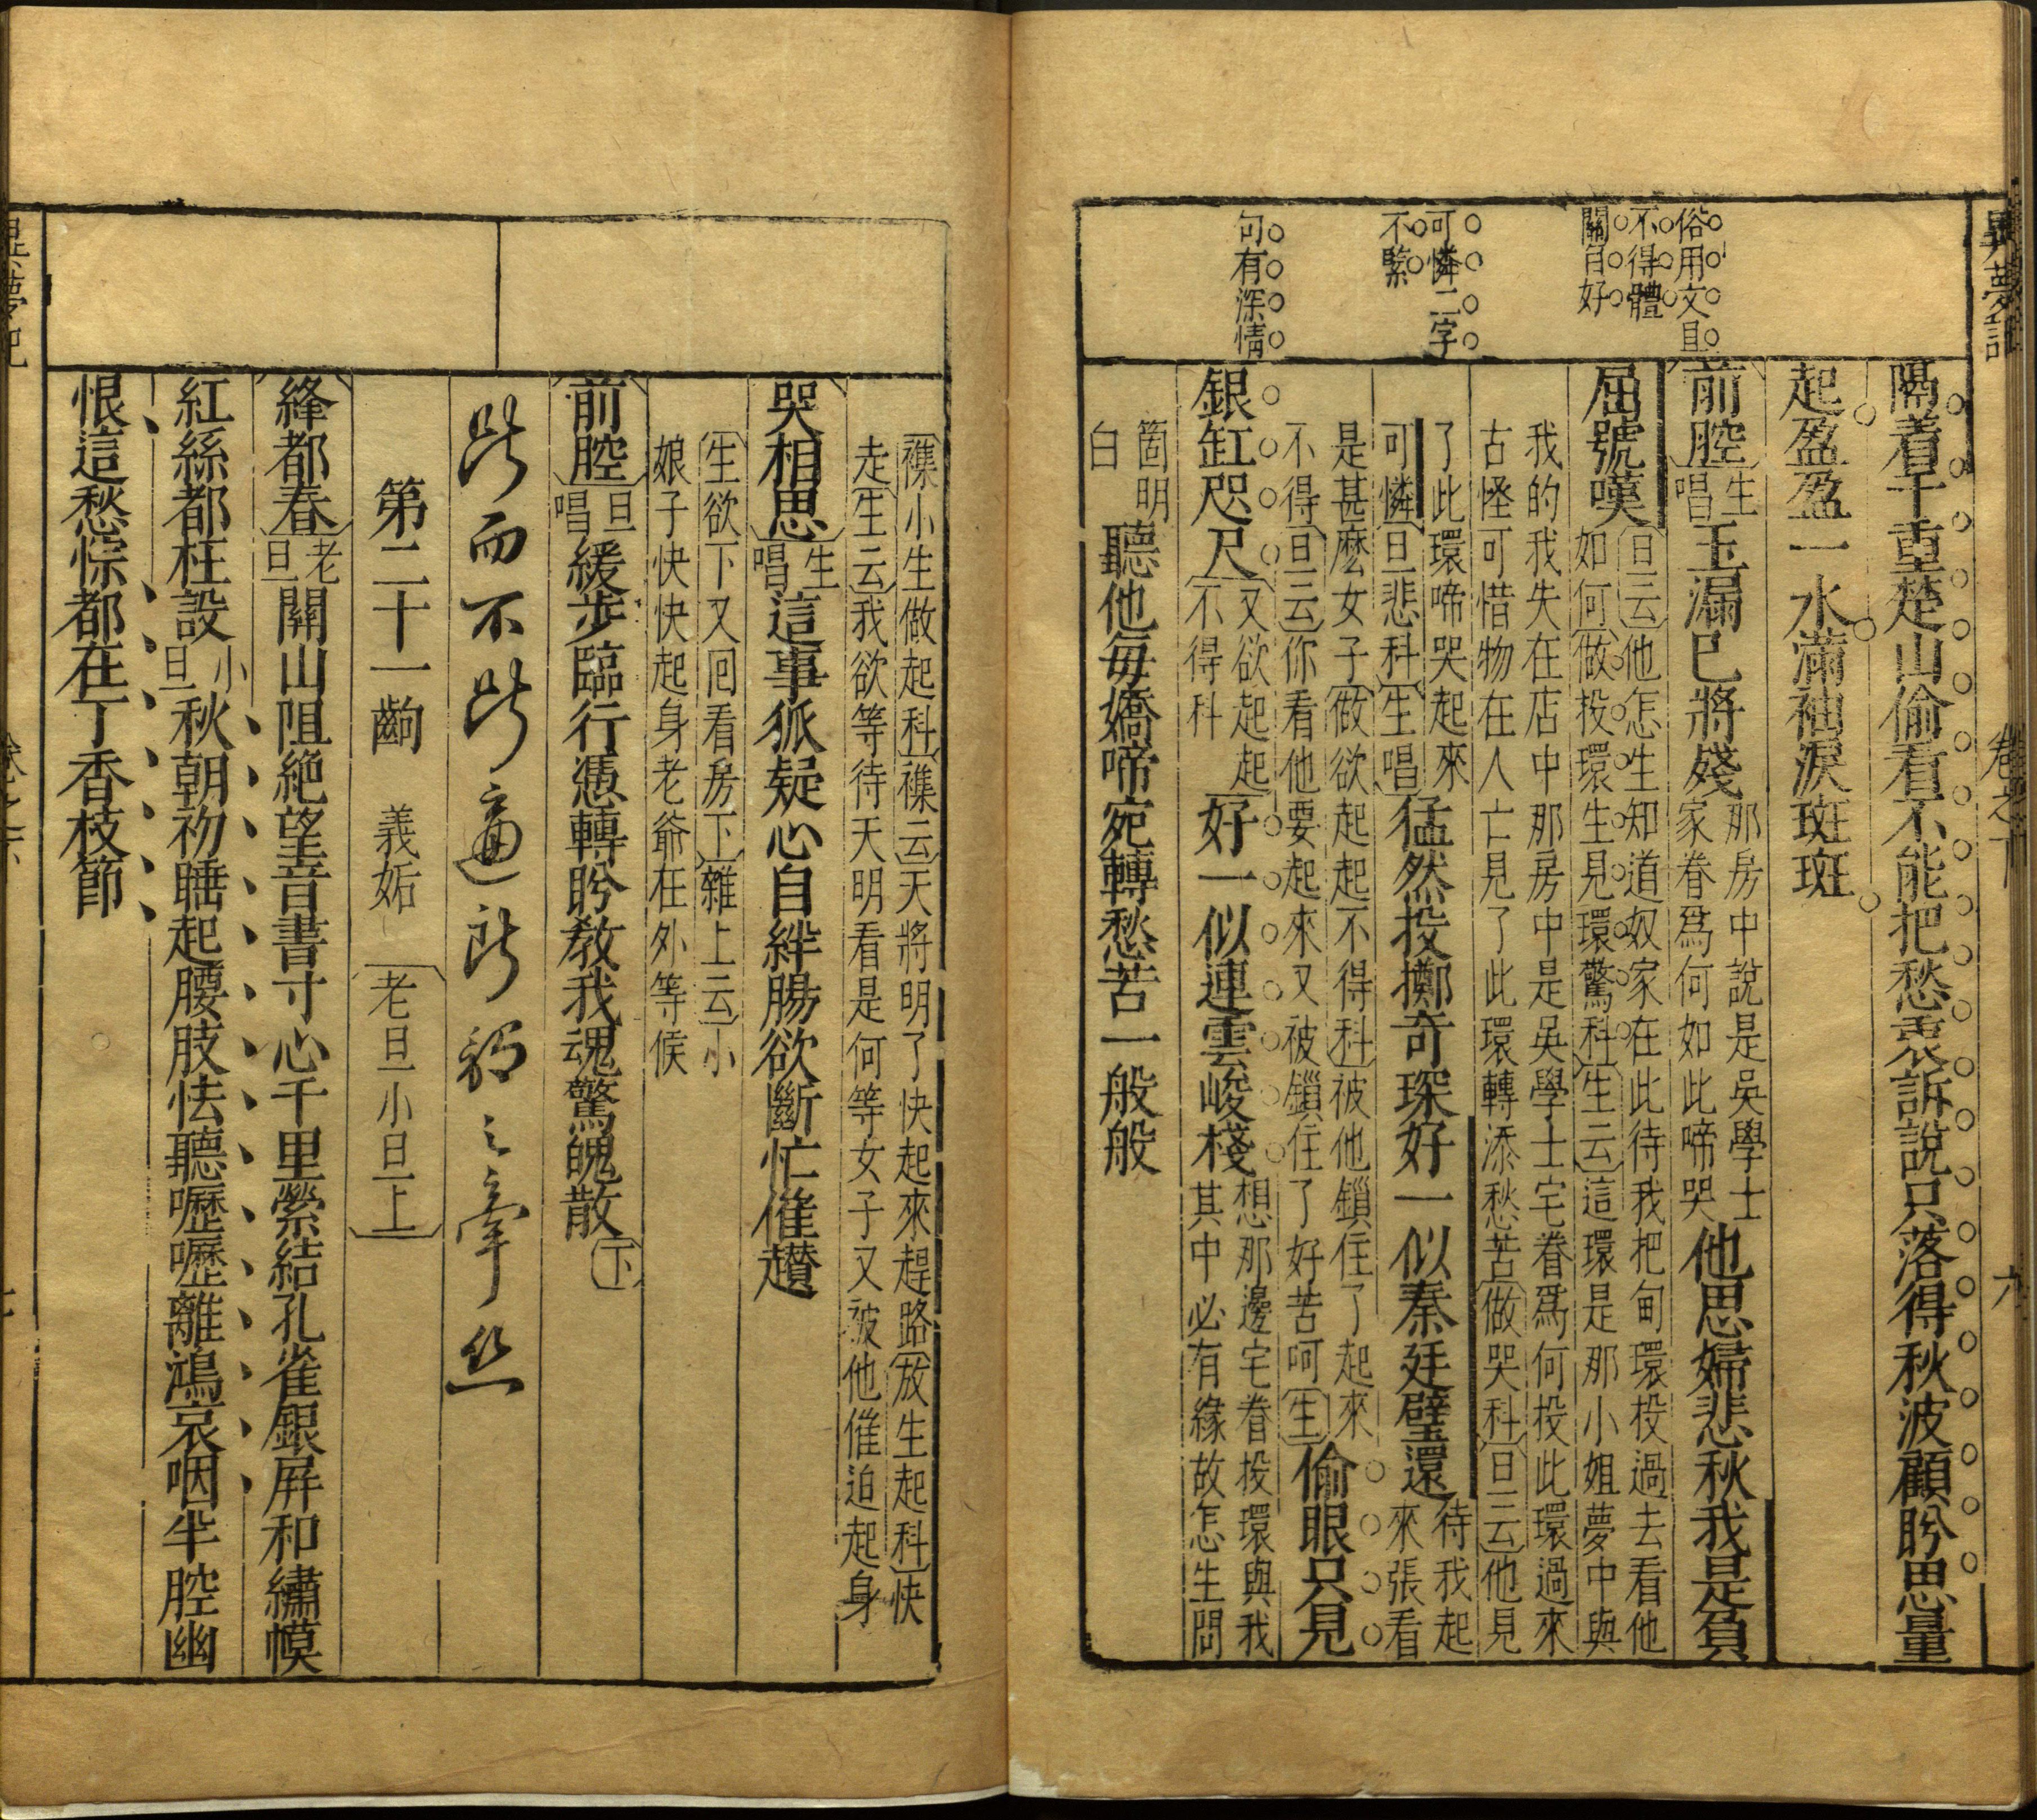 異夢記
卷之下
俗用文且
不得體
關目好
可憐二字
不緊
句有深情
隔着千重楚山偷看不能把愁衷訴說只落得秋波顧盻思量
起盈盈一水滿袖淚斑斑
前腔生唱玉漏已將殘那房中說是吳學士家眷爲何如此啼哭他思婦悲秋我是負
屈號嘆旦云他怎生知道奴家在此待我把甸環投過去看他如何做投環生見環驚科生云這環是那小姐夢中與
我的我失在店中那房中是吳學士宅眷爲何投此環過來
古怪可惜物在人亡見了此環轉添愁苦做哭科旦云他見
了此環啼哭起來可憐旦悲科生唱猛然投擲奇琛好一似秦廷璧還待我起來張看
是甚麽女子做欲起起不得科被他鎖住了起來
不得旦云你看他要起來又被鎖住了好苦呵生偷眼只見
銀缸咫尺又欲起起不得科好一似連雲峻棧想那邊宅眷投環與我其中必有緣故怎生問
箇明白聽他每嬌啼宛轉愁苦一般般
襍小生做起科襍云天將明了快起來趕路放生起科快
走生云我欲等待天明看是何等女子又被他催迫起身
哭相思生唱這事狐疑心自絆腸欲斷忙催趲
生欲下又回看房下雜上云小
娘子快快起身老爺在外等候
前腔旦唱緩步臨行慿轉盻教我魂驚魄散下
第二十一齣 義妬 老旦小旦上
絳都春老旦關山阻絶望音書寸心千里縈結孔雀銀屛和繡幙
紅絲都枉設小旦秋朝初睡起腰肢怯聽嚦嚦離鴻哀咽半腔幽
恨這愁悰都在丁香枝節
異夢記